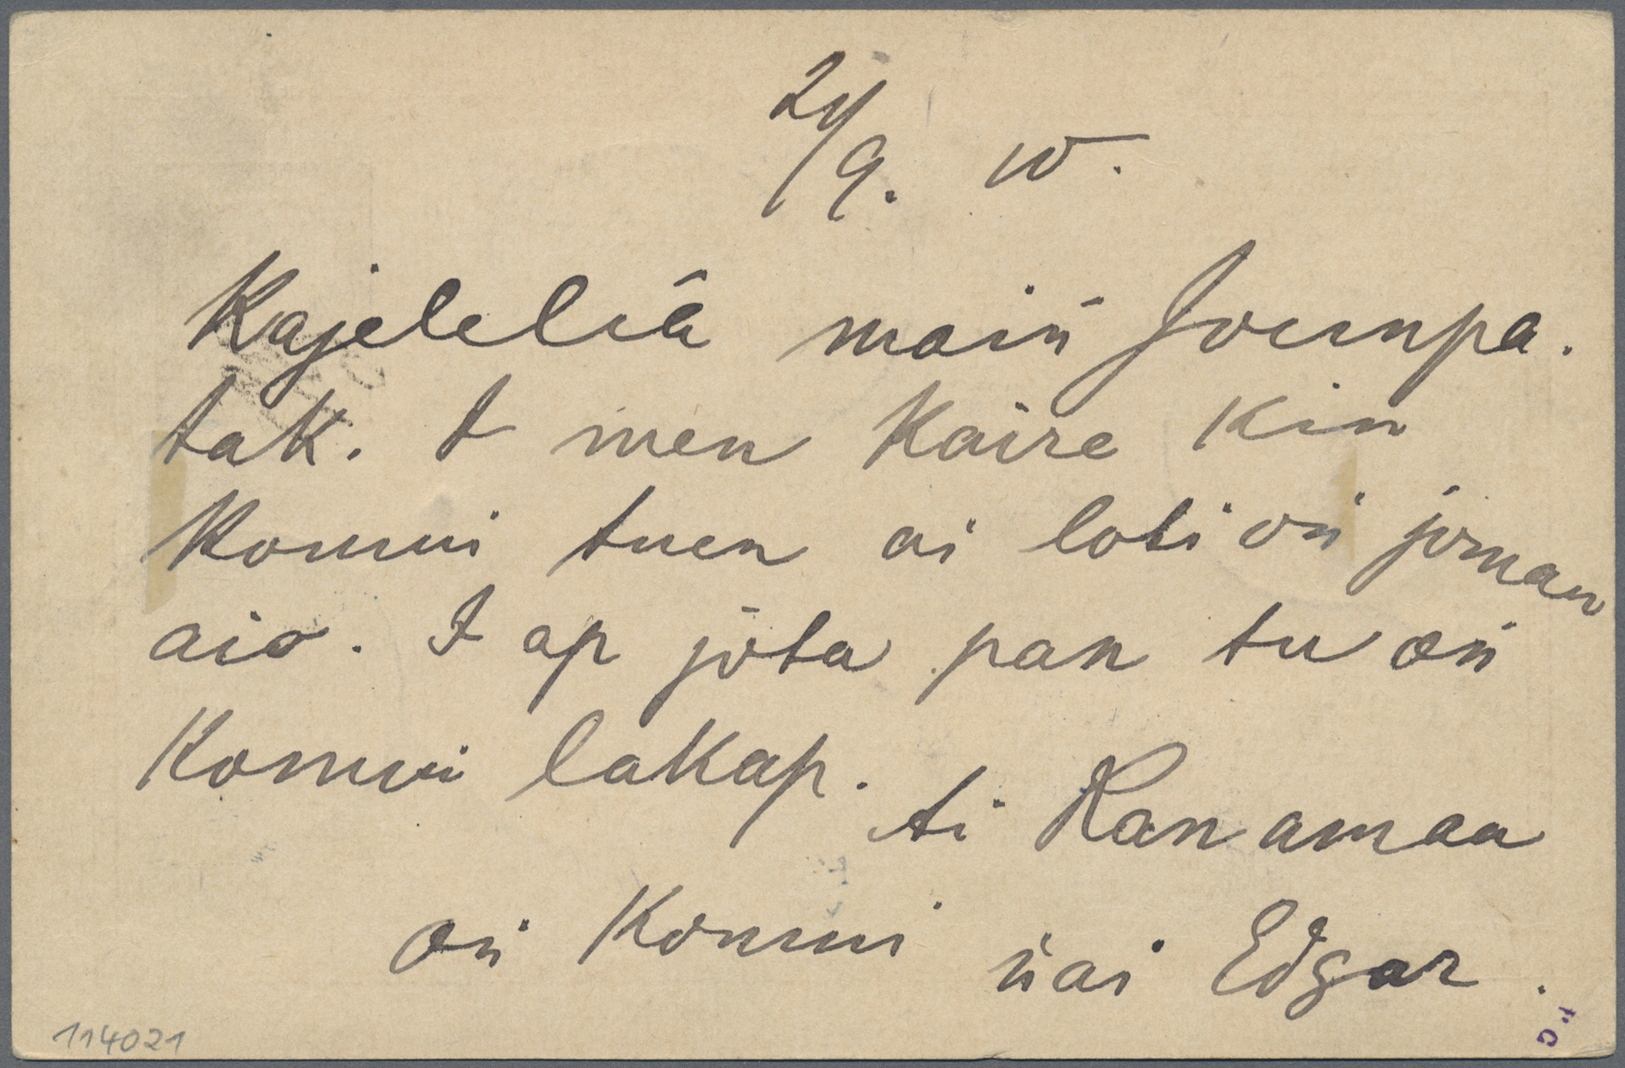 21/9. 10.
Kajeleliä maiṅ Jounpa.
tak. I men kaire kin
kommi tuen ai loti oṅ joman
aio. I ap jota pan tu oṅ
kommi lakap.
ti Ran amaa
oṅ kommi
ṅai Edgar.
114021